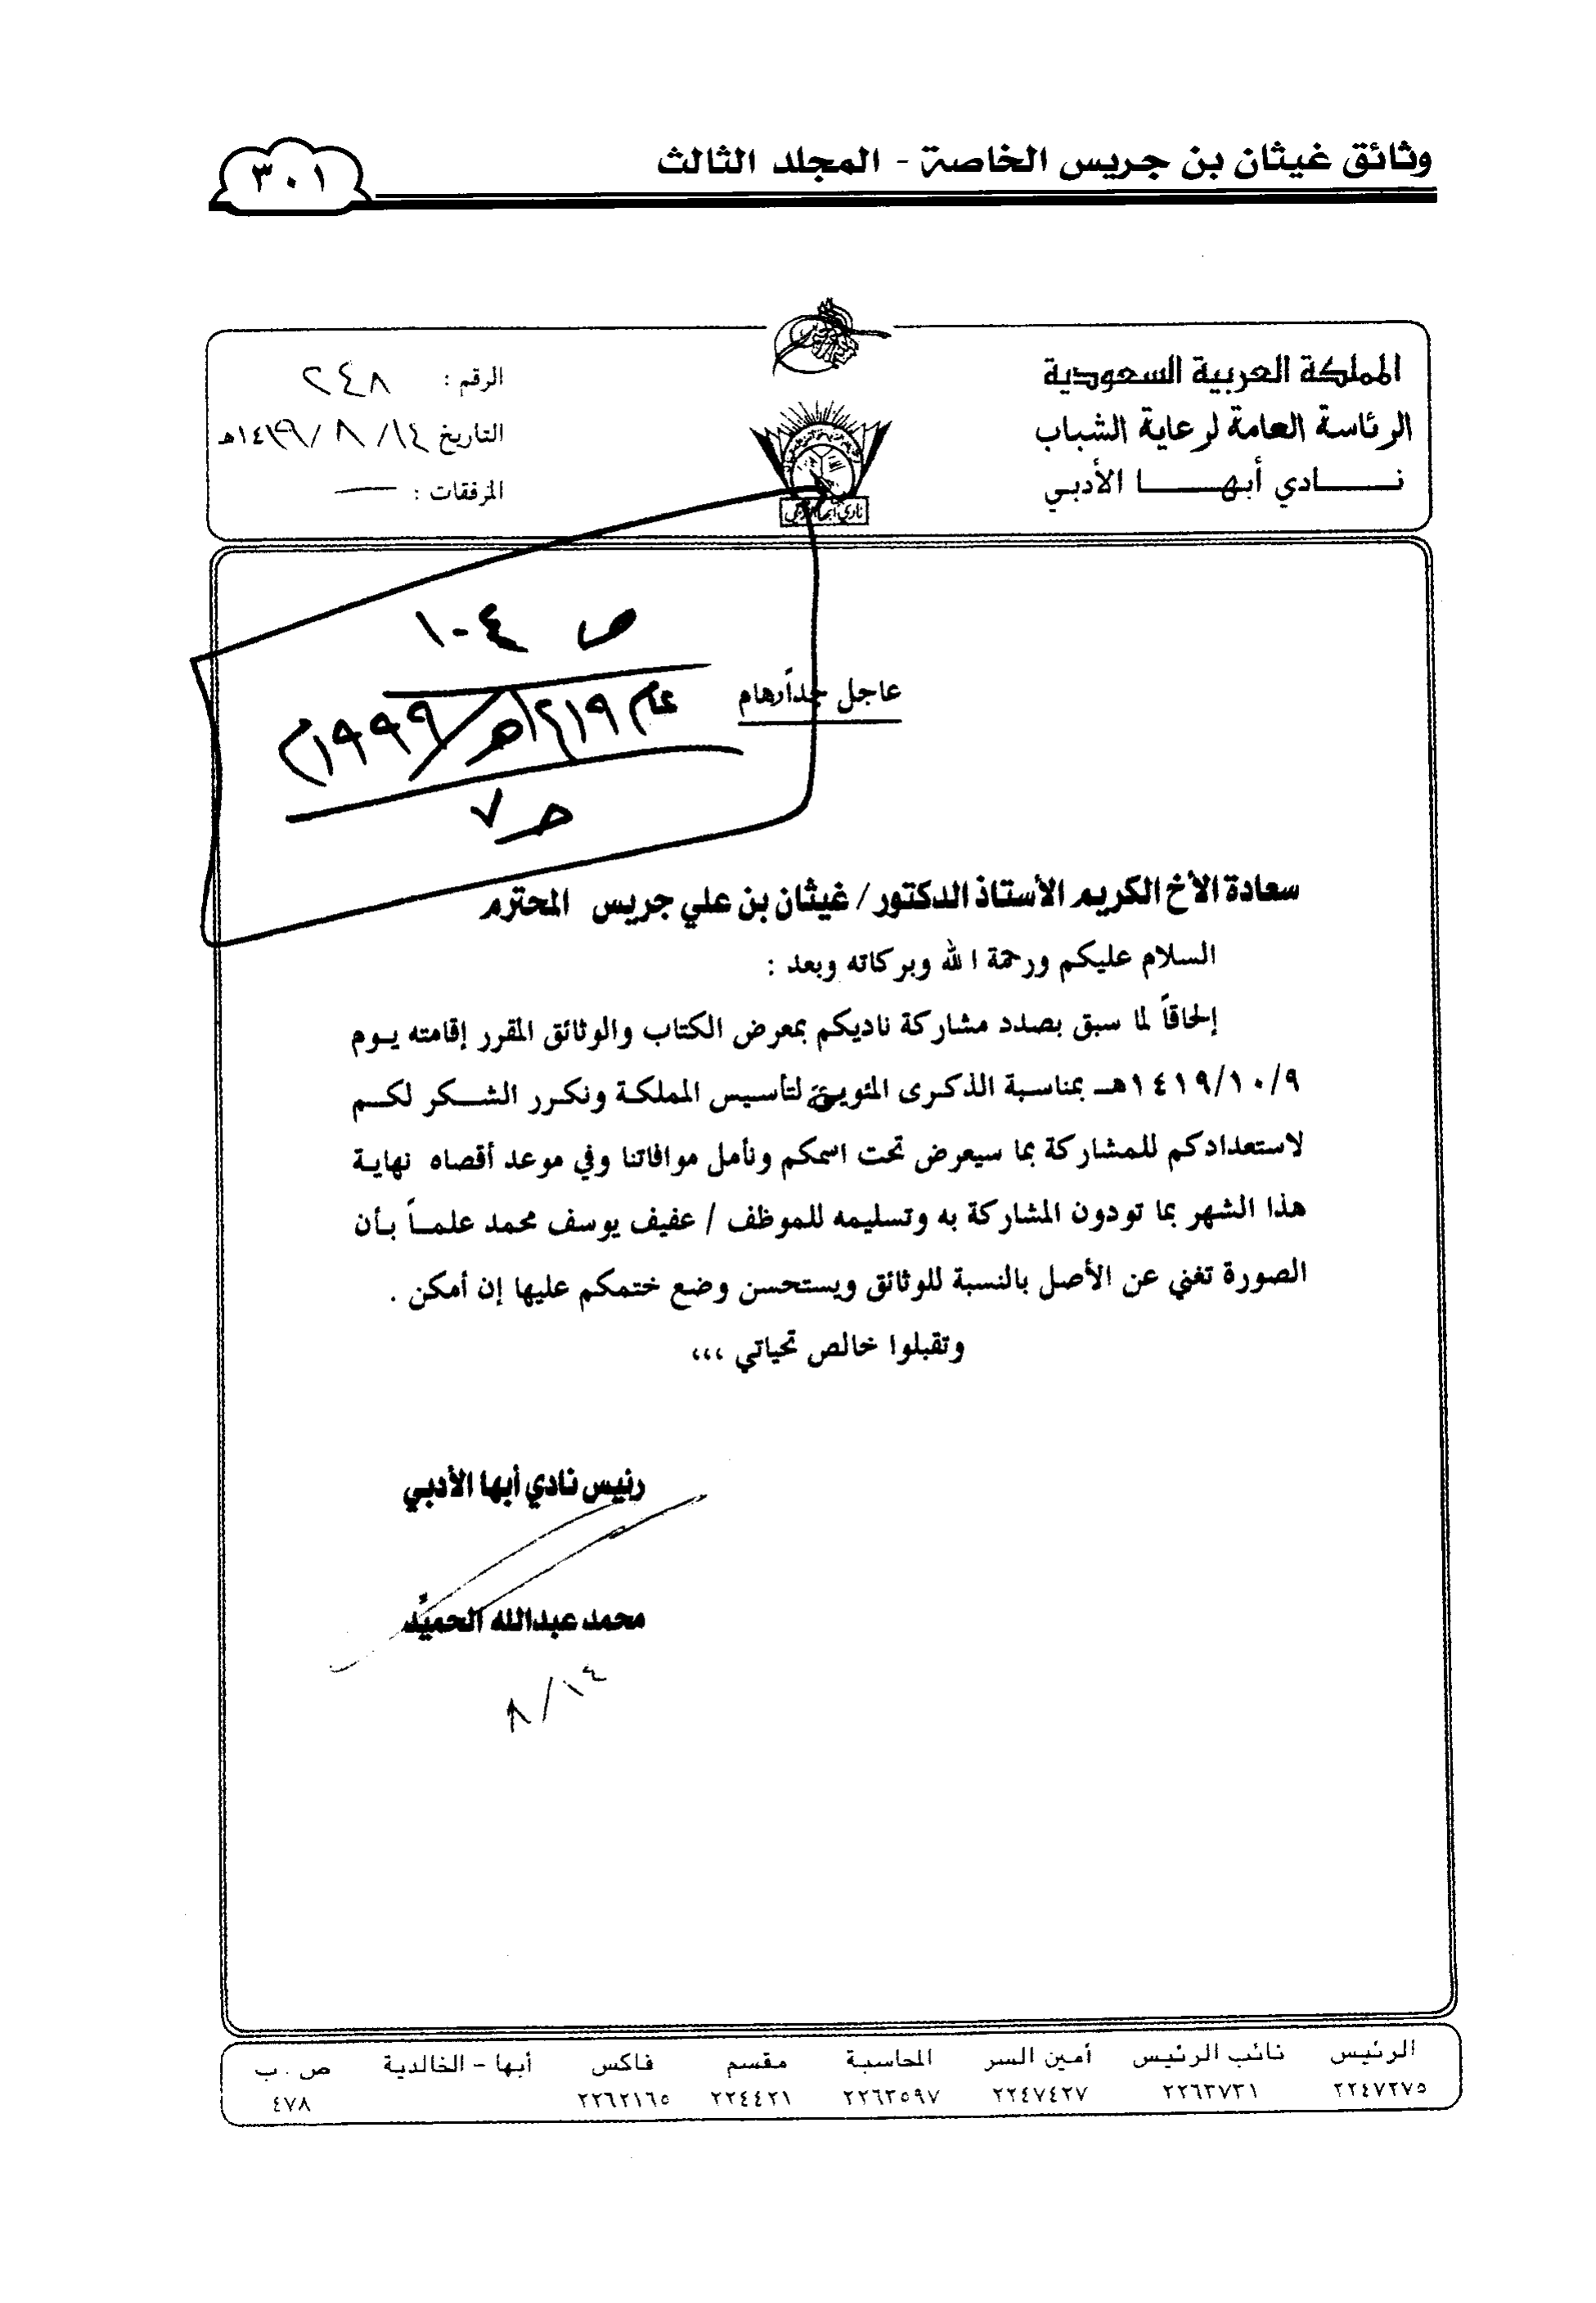 وثائق غيثان بن جريس الخاصة - المجلد الثالث
٣٠١
المملكة العربية السعودية
الرئاسة العامة لرعاية الشباب
نـــادي أبهـــا الأدبي
نادي أبها الأدبي
الرقم : ٢٤٨
التاريخ ١٤/ ٨ /١٤١٩هـ
المرفقات : —
ص ١٠٤
عام ١٤١٩هـ/١٩٩٩م
حـ ٧
عاجل جداً وهام
سعادة الأخ الكريم الأستاذ الدكتور / غيثان بن علي جريس المحترم
السلام عليكم ورحمة الله وبركاته وبعد :
إلحاقاً لما سبق بصدد مشاركة ناديكم بمعرض الكتاب والوثائق المقرر إقامته يـوم
١٤١٩/١٠/٩هـ بمناسبة الذكرى المئوية لتأسيس المملكة ونكرر الشكر لكـم
لاستعدادكم للمشاركة بما سيعرض تحت اسمكم ونأمل موافاتنا وفي موعد أقصاه نهاية
هذا الشهر بما تودون المشاركة به وتسليمه للموظف / عفيف يوسف محمد علمـاً بـأن
الصورة تغني عن الأصل بالنسبة للوثائق ويستحسن وضع ختمكم عليها إن أمكن .
وتقبلوا خالص تحياتي ،،،
رئيس نادي أبها الأدبي
محمد عبدالله الحميّد
٨/١٤
الرئيس نائب الرئيس أمين السر المحاسبة مقسم فاكس أبها - الخالدية ص . ب
٢٢٤٧٢٧٥ ٢٢٦٣٧٣١ ٢٢٤٧٤٢٧ ٢٢٦٢٥٩٧ ٢٢٤٤٢١ ٢٢٦٢١٦٥ ٤٧٨